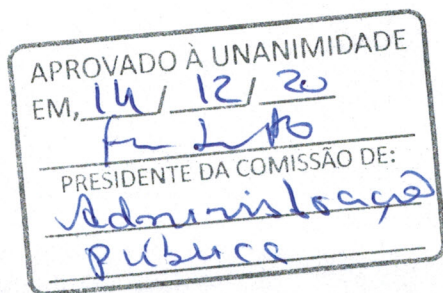 APROVADO À UNANIMIDADE
EM, 14 / 12 / 20
PRESIDENTE DA COMISSÃO DE:
Administração
Pública